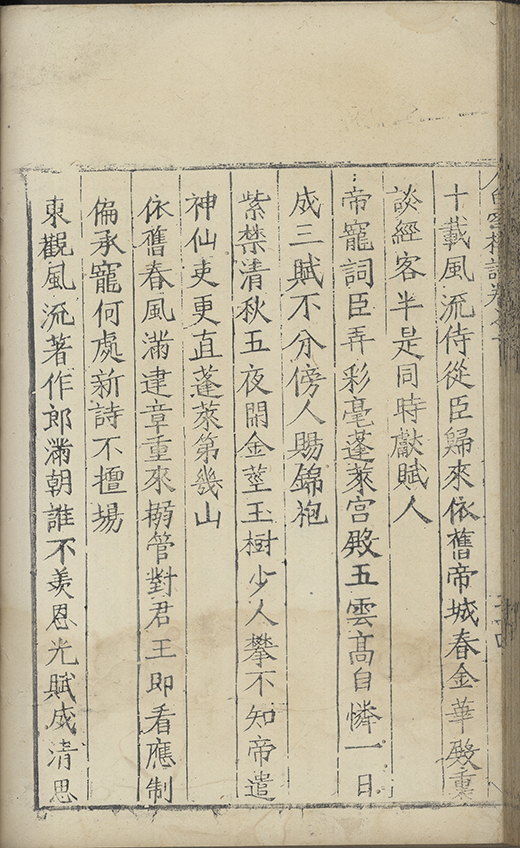 白雲樓詩卷之十
十載風流侍從臣歸來依舊帝城春金華殿裏
談經客半是同時獻賦人
帝寵詞臣弄彩毫蓬萊宮殿五雲高自憐一日
成三賦不分傍人賜錦袍
紫禁清秋五夜閒金莖玉樹少人攀不知帝遣
神仙吏更直蓬萊第幾山
依舊春風滿建章重來搦管對君王即看應制
偏承寵何處新詩不擅場
東觀風流著作郎滿朝誰不羨恩光賦成清思